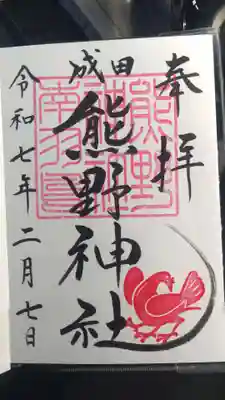 奉拝
成田
熊野神社
令和七年二月七日